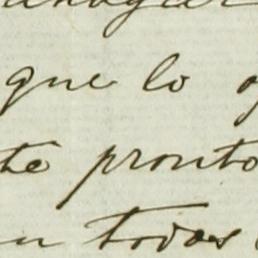 que lo
te pronto
en todos